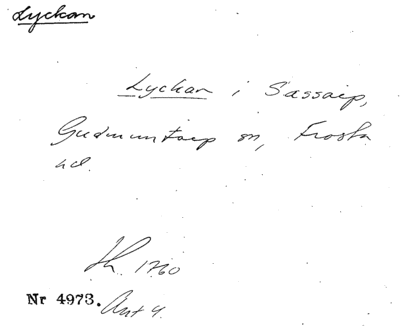 Lyckan
Lyckan i Sassarp,
Gudmuntorp sn, Frosta
hd.
Jh. 1760
Nr 4973. Ant 4.